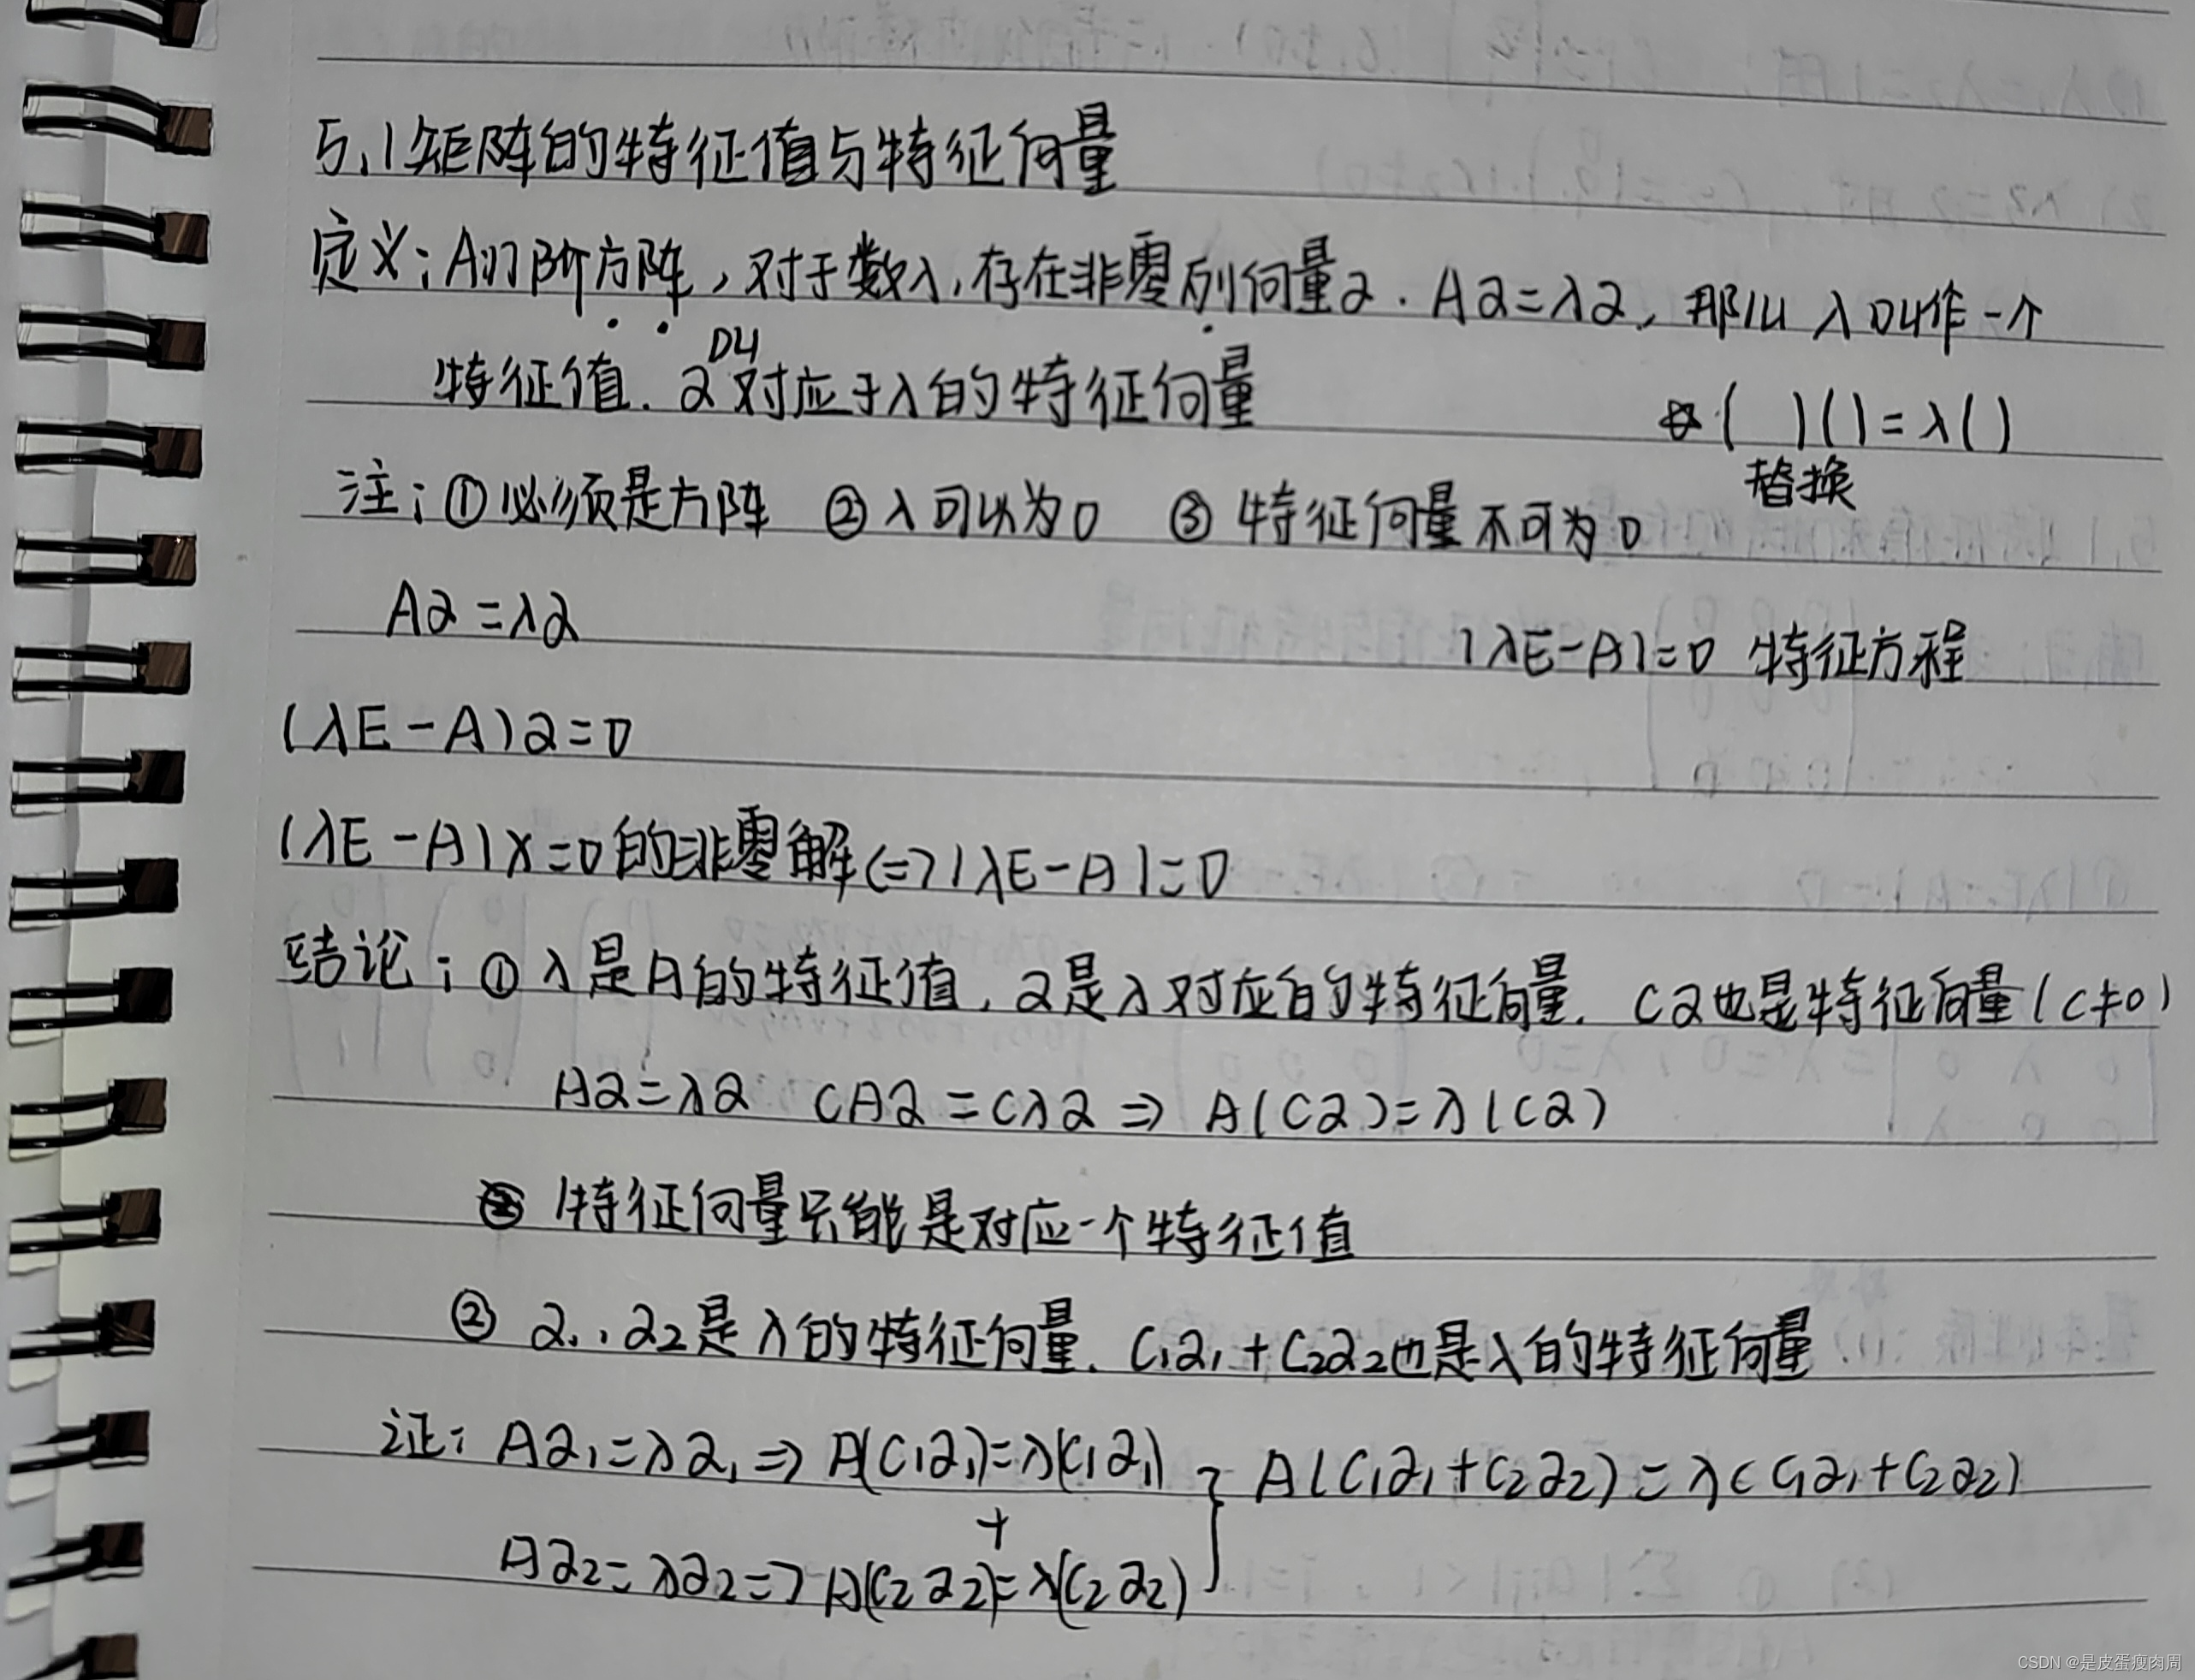 5.1矩阵的特征值与特征向量
定义:A为n阶方阵,对于数λ,存在非零列向量α.Aα=λα,那么λ叫作一个
特征值.α叫对应于λ的特征向量
( )()=λ()
替换
注:①必须是方阵 ②λ可以为0 ③特征向量不可为0
Aα=λα
|λE-A|=0 特征方程
(λE-A)α=0
(λE-A)x=0的非零解<=>|λE-A|=0
结论:①λ是A的特征值,α是λ对应的特征向量.cα也是特征向量(c≠0)
Aα=λα cAα=cλα⇒A(cα)=λ(cα)
特征向量只能是对应一个特征值
②α₁,α₂是λ的特征向量.c₁α₁+c₂α₂也是λ的特征向量
证:Aα₁=λα₁⇒A(c₁α₁)=λ(c₁α₁)
+
Aα₂=λα₂=>A(c₂α₂)=λ(c₂α₂)
} A(c₁α₁+c₂α₂)=λ(c₁α₁+c₂α₂)
CSDN @是皮蛋瘦肉周